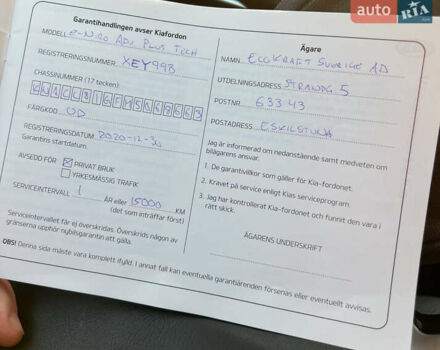 auto RIA .com
Garantihandlingen avser Kiafordon
MODELL e-Niro Adv Plus Tech
REGISTRERINGSNUMMER XEY99B
CHASSINUMMER (17 tecken):
FÄRGKOD UD
REGISTRERINGSDATUM 2020-12-30
Garantins startdatum.
AVSEDD FÖR PRIVAT BRUK
YRKESMÄSSIG TRAFIK
SERVICEINTERVALL 1 ÅR eller 15000 KM
(det som inträffar först)
Serviceintervallet får ej överskridas. Överskrids någon av
gränserna upphör nybilsgarantin att gälla.
OBS! Denna sida måste vara komplett ifylld. I annat fall kan eventuella garantiärenden försenas eller eventuellt avvisas.
Ägare
NAMN Ecokraft Sverige AB
UTDELNINGSADRESS Strandg 5
POSTNR 63343
POSTADRESS Eskilstuna
Jag är informerad om nedanstående samt medveten om
bilägarens ansvar.
1. De garantivillkor som gäller för Kia-fordonet.
2. Kravet på service enligt Kias serviceprogram.
3. Jag har kontrollerat Kia-fordonet och funnit den vara i
rätt skick.
ÄGARENS UNDERSKRIFT